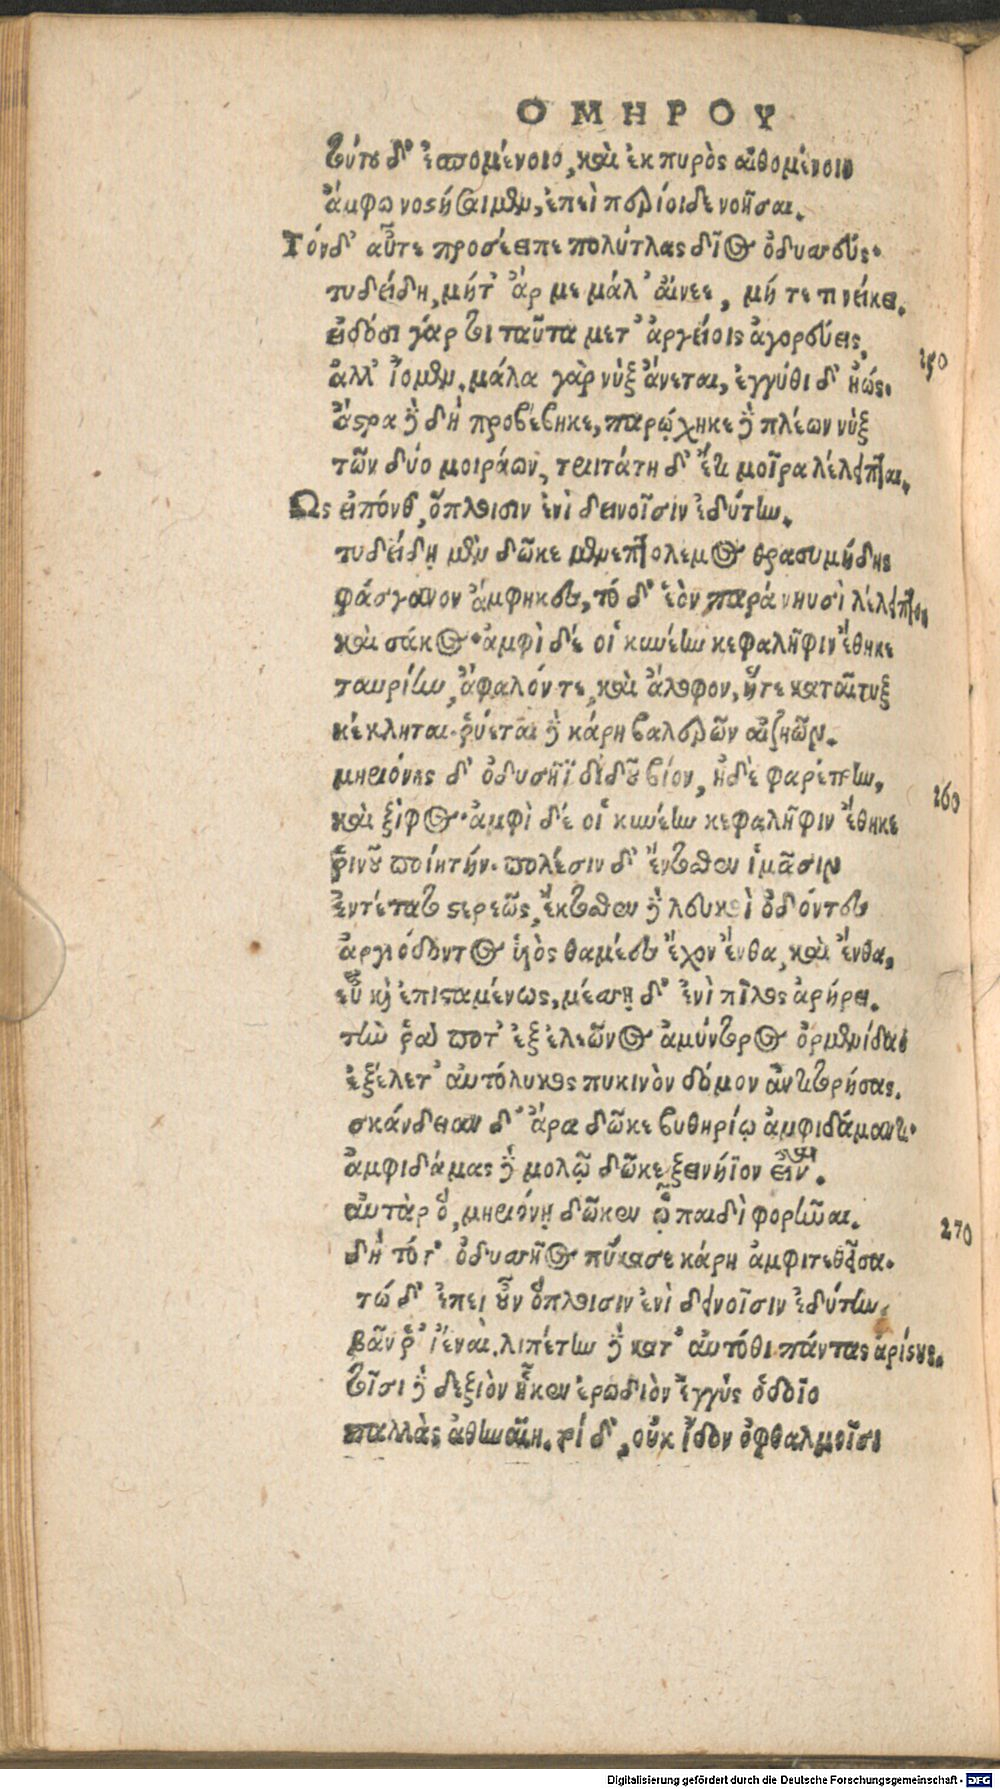 ΟΜΗΡΟΥ
τούτου δ' ἑσπομένοιο, καὶ ἐκ πυρὸς αἰθομένοιο
ἄμφω νοστήσαιμεν, ἐπεὶ περίοιδε νοῆσαι.
Τόνδ' αὖτε προσέειπε πολύτλας δῖος ὀδυσσεύς·
τυδείδη, μήτ' ἄρ με μάλ' αἴνεε, μή τε τι νείκει.
εἰδόσι γάρ τοι ταῦτα μετ' ἀργείοις ἀγορεύεις,
250
ἀλλ' ἴομεν. μάλα γὰρ νὺξ ἄνεται, ἐγγύθι δ' ἠώς.
ἄστρα δὲ δὴ προβέβηκε, παρῴχηκε δὲ πλέων νὺξ
τῶν δύο μοιράων, τριτάτη δ' ἔτι μοῖρα λέλειπται.
Ως εἰπόνθ', ὅπλοισιν ἐνὶ δεινοῖσιν ἐδύτην.
τυδείδῃ μὲν δῶκε μενεπτόλεμος θρασυμήδης
φάσγανον ἄμφηκες, τὸ δ' ἑὸν παρὰ νηυσὶ λέλειπτο,
καὶ σάκος· ἀμφὶ δέ οἱ κυνέην κεφαλῆφιν ἔθηκε
ταυρίην, ἄφαλόν τε, καὶ ἄλοφον, ἥτε καταῖτυξ
κέκληται. ῥύεται δὲ κάρη θαλερῶν αἰζηῶν.
μηριόνης δ' ὀδυσῆϊ δίδου βιόν, ἠδὲ φαρέτρην,
260
καὶ ξίφος· ἀμφὶ δέ οἱ κυνέην κεφαλῆφιν ἔθηκε
ῥινοῦ ποιητήν. πολέσιν δ' ἔντοσθεν ἱμᾶσιν
ἐντέτατο στερεῶς, ἔκτοσθεν δὲ λευκοὶ ὀδόντες
ἀργιόδοντος ὑὸς θαμέες ἔχον ἔνθα, καὶ ἔνθα,
εὖ καὶ ἐπισταμένως, μέσσῃ δ' ἐνὶ πῖλος ἀρήρει.
τήν ῥά ποτ' ἐξ ἐλεῶνος ἀμύντορος ὀρμενίδαο
ἐξέλετ' αὐτόλυκος πυκινὸν δόμον ἀντιτορήσας.
σκάνδειαν δ' ἄρα δῶκε κυθηρίῳ ἀμφιδάμαντι·
ἀμφιδάμας δὲ μολῷ δῶκε ξεινήϊον εἶναι.
αὐτὰρ ὅ, μηριόνῃ δῶκεν ᾧ παιδὶ φορῆναι.
270
δὴ τότ' ὀδυσσῆος πύκασε κάρη ἀμφιτεθεῖσα.
τώ δ' ἐπεὶ οὖν ὅπλοισιν ἐνὶ δεινοῖσιν ἐδύτην,
βᾶν ῥ' ἰέναι. λιπέτην δὲ κατ' αὐτόθι πάντας ἀρίστους.
τοῖσι δὲ δεξιὸν ἧκεν ἐρωδιὸν ἐγγὺς ὁδοῖο
παλλὰς ἀθηναίη. τοὶ δ', οὐκ ἴδον ὀφθαλμοῖσι
Digitalisierung gefördert durch die Deutsche Forschungsgemeinschaft - DFG